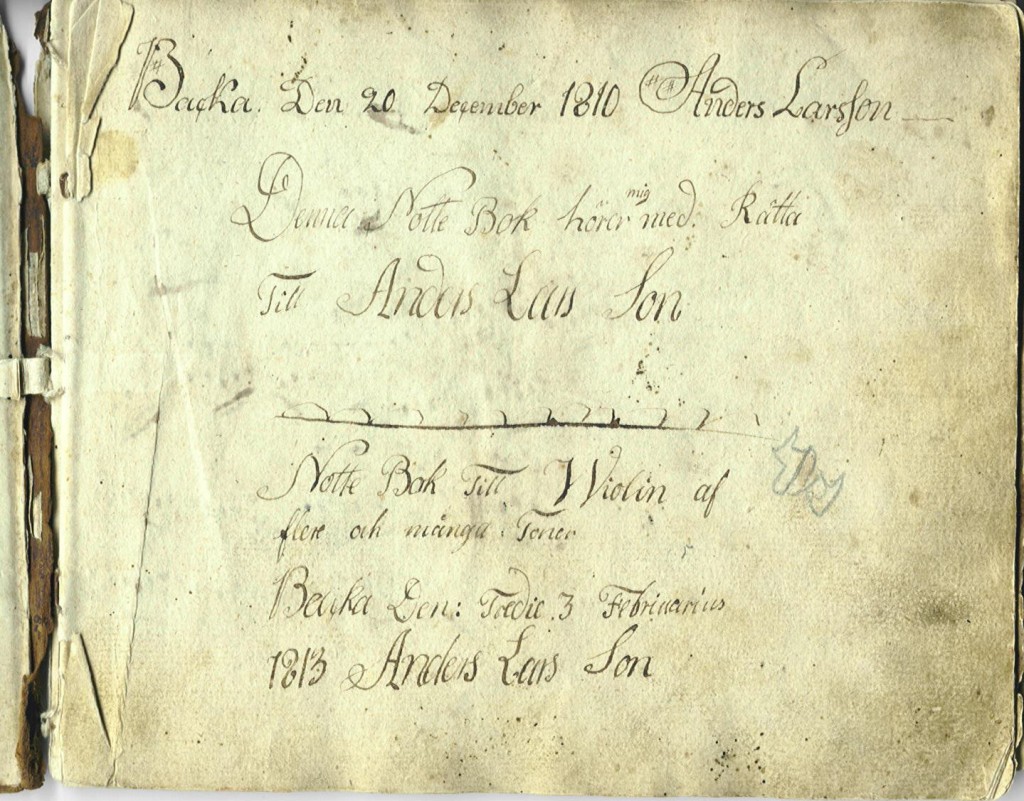 Backa. Den 20 December 1810 Anders Larsson
Denna Notte Bok hörer mig med. Rätta
Till Anders Lars Son
Notte Bok Till Wiolin af
flere och många Toner
Backa Den: Tredie. 3 Febriuarius
1813 Anders Lars Son